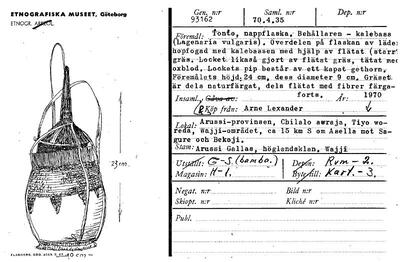 ETNOGRAFISKA MUSEET, Göteborg
ETNOGR. AVDELN.
23 cm.
10 cm
Gen. n:r
93162
Samml. n:r
70.4.35
Dep. n:r
Föremål: fonfo, nappflaska, Behållaren - kalebass
(Lagenaria vulgaris). Överdelen på flaskan av läder
hopfogad med kalebassen med hjälp av flätat
gräs, Locket likaså gjort av flätat gräs, tätat med
oxblod, Lockets pip består av ett kapat gethorn.
Föremålets höjd, 24 cm, dess diameter 9 cm, Gräset
är dels naturfärgat, dels flätat med fibrer färga-
forts.
Insaml. Gåva av: År: 1970
Köp från: Arne Lexander
Lokal: Arussi-provinsen, Chilalo awraja, Tiyo wo-
reda, Wajji-området, ca 15 km S om Asella mot Sa-
gure och Bekoji.
Stam: Arussi Gallas, höglandsklan, Wajji
Utställt: G-S. (bambo.)
Depon: Rum-2.
Magasin: H-1.
Byte till: Kart.-3.
Negat. n:r
Bild n:r
Skiopt. n:r
Kliché n:r
Publ.